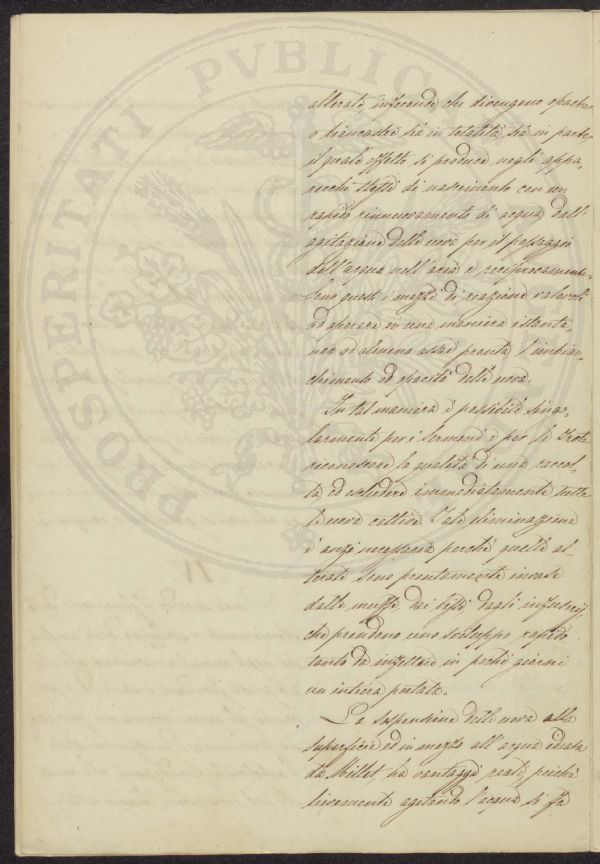 PROSPERITATI PVBLIC
alterate, infeconde, che divengono opache
o biancastre sia in totalità, sia in parte,
il quale effetto si produce negli appa,
recchi stessi di nascimento con un
rapido rinnuovamento di acqua, dall'
agitazione delle uova per il passaggio
dall'acqua nell'aria e reciprocamente.
Sono questi i mezzi di reazione valevoli
ad operare in una maniera istanta,
nea od almeno assai pronta l'imbian,
chimento ed opacità delle uova.
In tal maniera è possibile singo,
larmente per i Sermoni e per le Trote
riconoscere la qualità di una raccol,
ta ed escludere immediatamente tutte
le uova cattive. Tale eliminazione
è anzi necessaria perché quelle al,
terate sono prontamente invase
dalle muffe, dai bissi, dagli infusorij
che prendono uno sviluppo rapido
tanto da infettare in pochi giorni
un intiera portata.
La sospensione delle uova alla
superficie ed in mezzo all'acqua ideata
da Millet, ha vantaggi reali, poiché
lievemente agitando l'acqua si fa